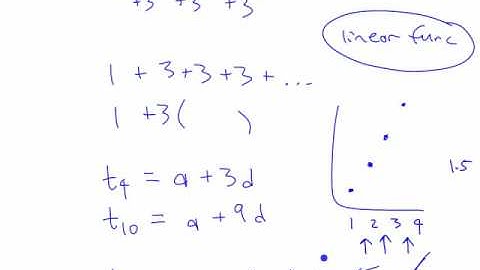 +3 +3 +3
linear func
1 + 3+3+3 + ...
1 +3( )
t4 = a + 3d
1.5
t10 = a + 9d
1 2 3 4